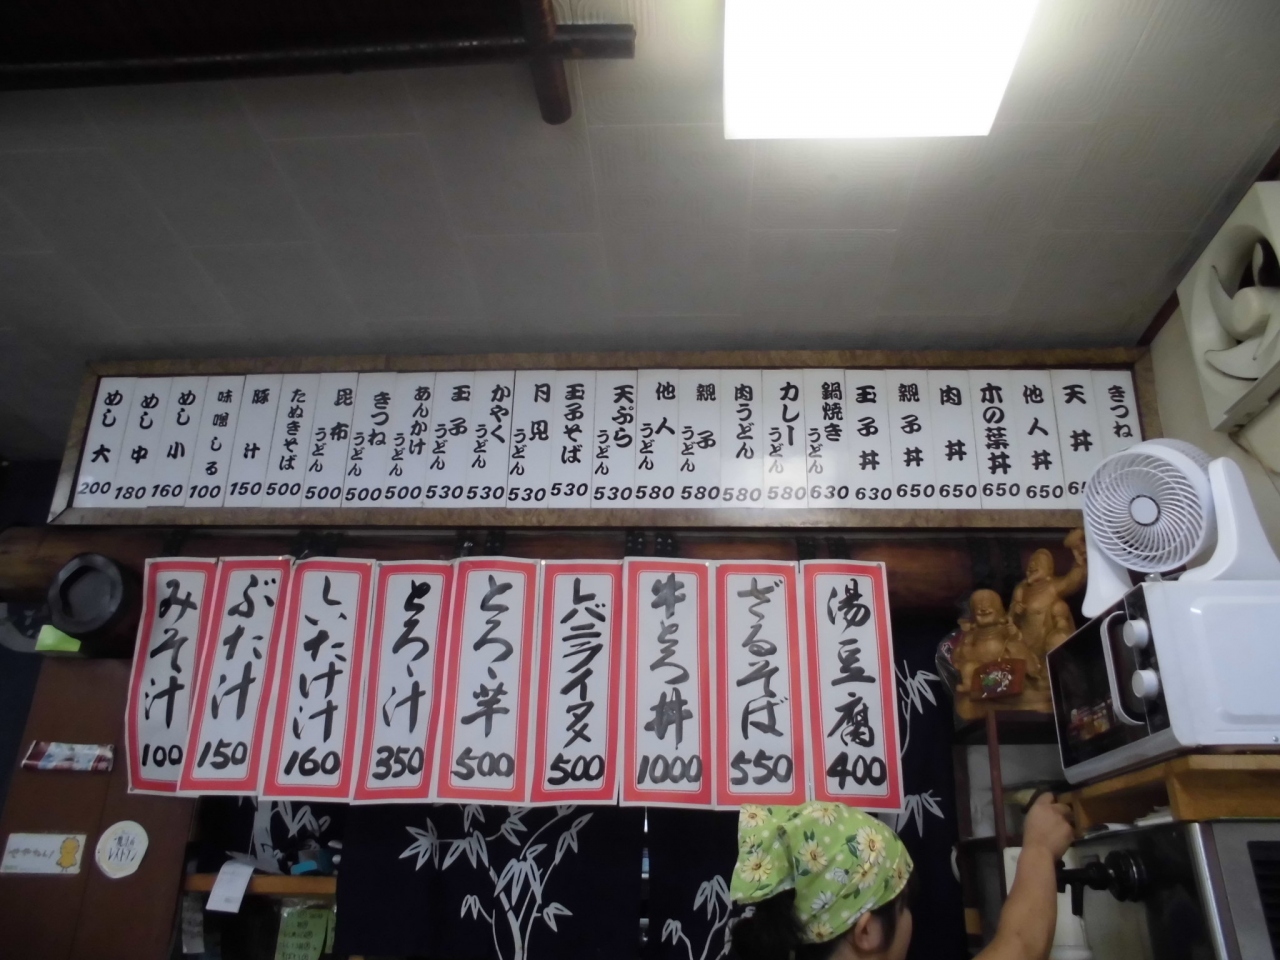 めし大 200
めし中 180
めし小 160
味噌しる 100
豚汁 150
たぬきそば 500
昆布うどん 500
きつねうどん 500
あんかけうどん 500
玉子うどん 530
かやくうどん 530
月見うどん 530
玉子そば 530
天ぷらうどん 530
他人うどん 580
親子うどん 580
肉うどん 580
カレーうどん 580
鍋焼きうどん 630
玉子丼 630
親子丼 650
肉丼 650
木の葉丼 650
他人丼 650
天丼
きつね
みそ汁 100
ぶた汁 150
しいたけ汁 160
とろろ汁 350
とろろ芋 500
レバニライタメ 500
牛とろ丼 1000
ざるそば 550
湯豆腐 400